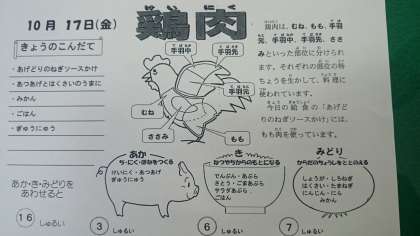 10月 17日(金)
鶏肉
きょうのこんだて
・あげどりのねぎソースかけ
・あつあげとはくさいのうまに
・みかん
・ごはん
・ぎゅうにゅう
手羽中
手羽先
手羽元
むね
ささみ
もも
鶏肉は、むね、もも、手羽
先、手羽中、手羽元、ささ
みといった部位に分けられ
ます。それぞれの部位の特
ちょうを生かして、料理に
使われています。
今日の給食の「あげど
りのねぎソースかけ」には、
もも肉を使っています。
あか・き・みどりを
あわせると
16 しゅるい
あか
ち・にく・ほねをつくる
けいにく・あつあげ
ぎゅうにゅう
3 しゅるい
き
ねつやちからのもとになる
でんぷん・あぶら
さとう・ごまあぶら
サラダあぶら
ごはん
6 しゅるい
みどり
からだのちょうしをととのえる
しょうが・しろねぎ
はくさい・たまねぎ
にんじん・にら
みかん
7 しゅるい